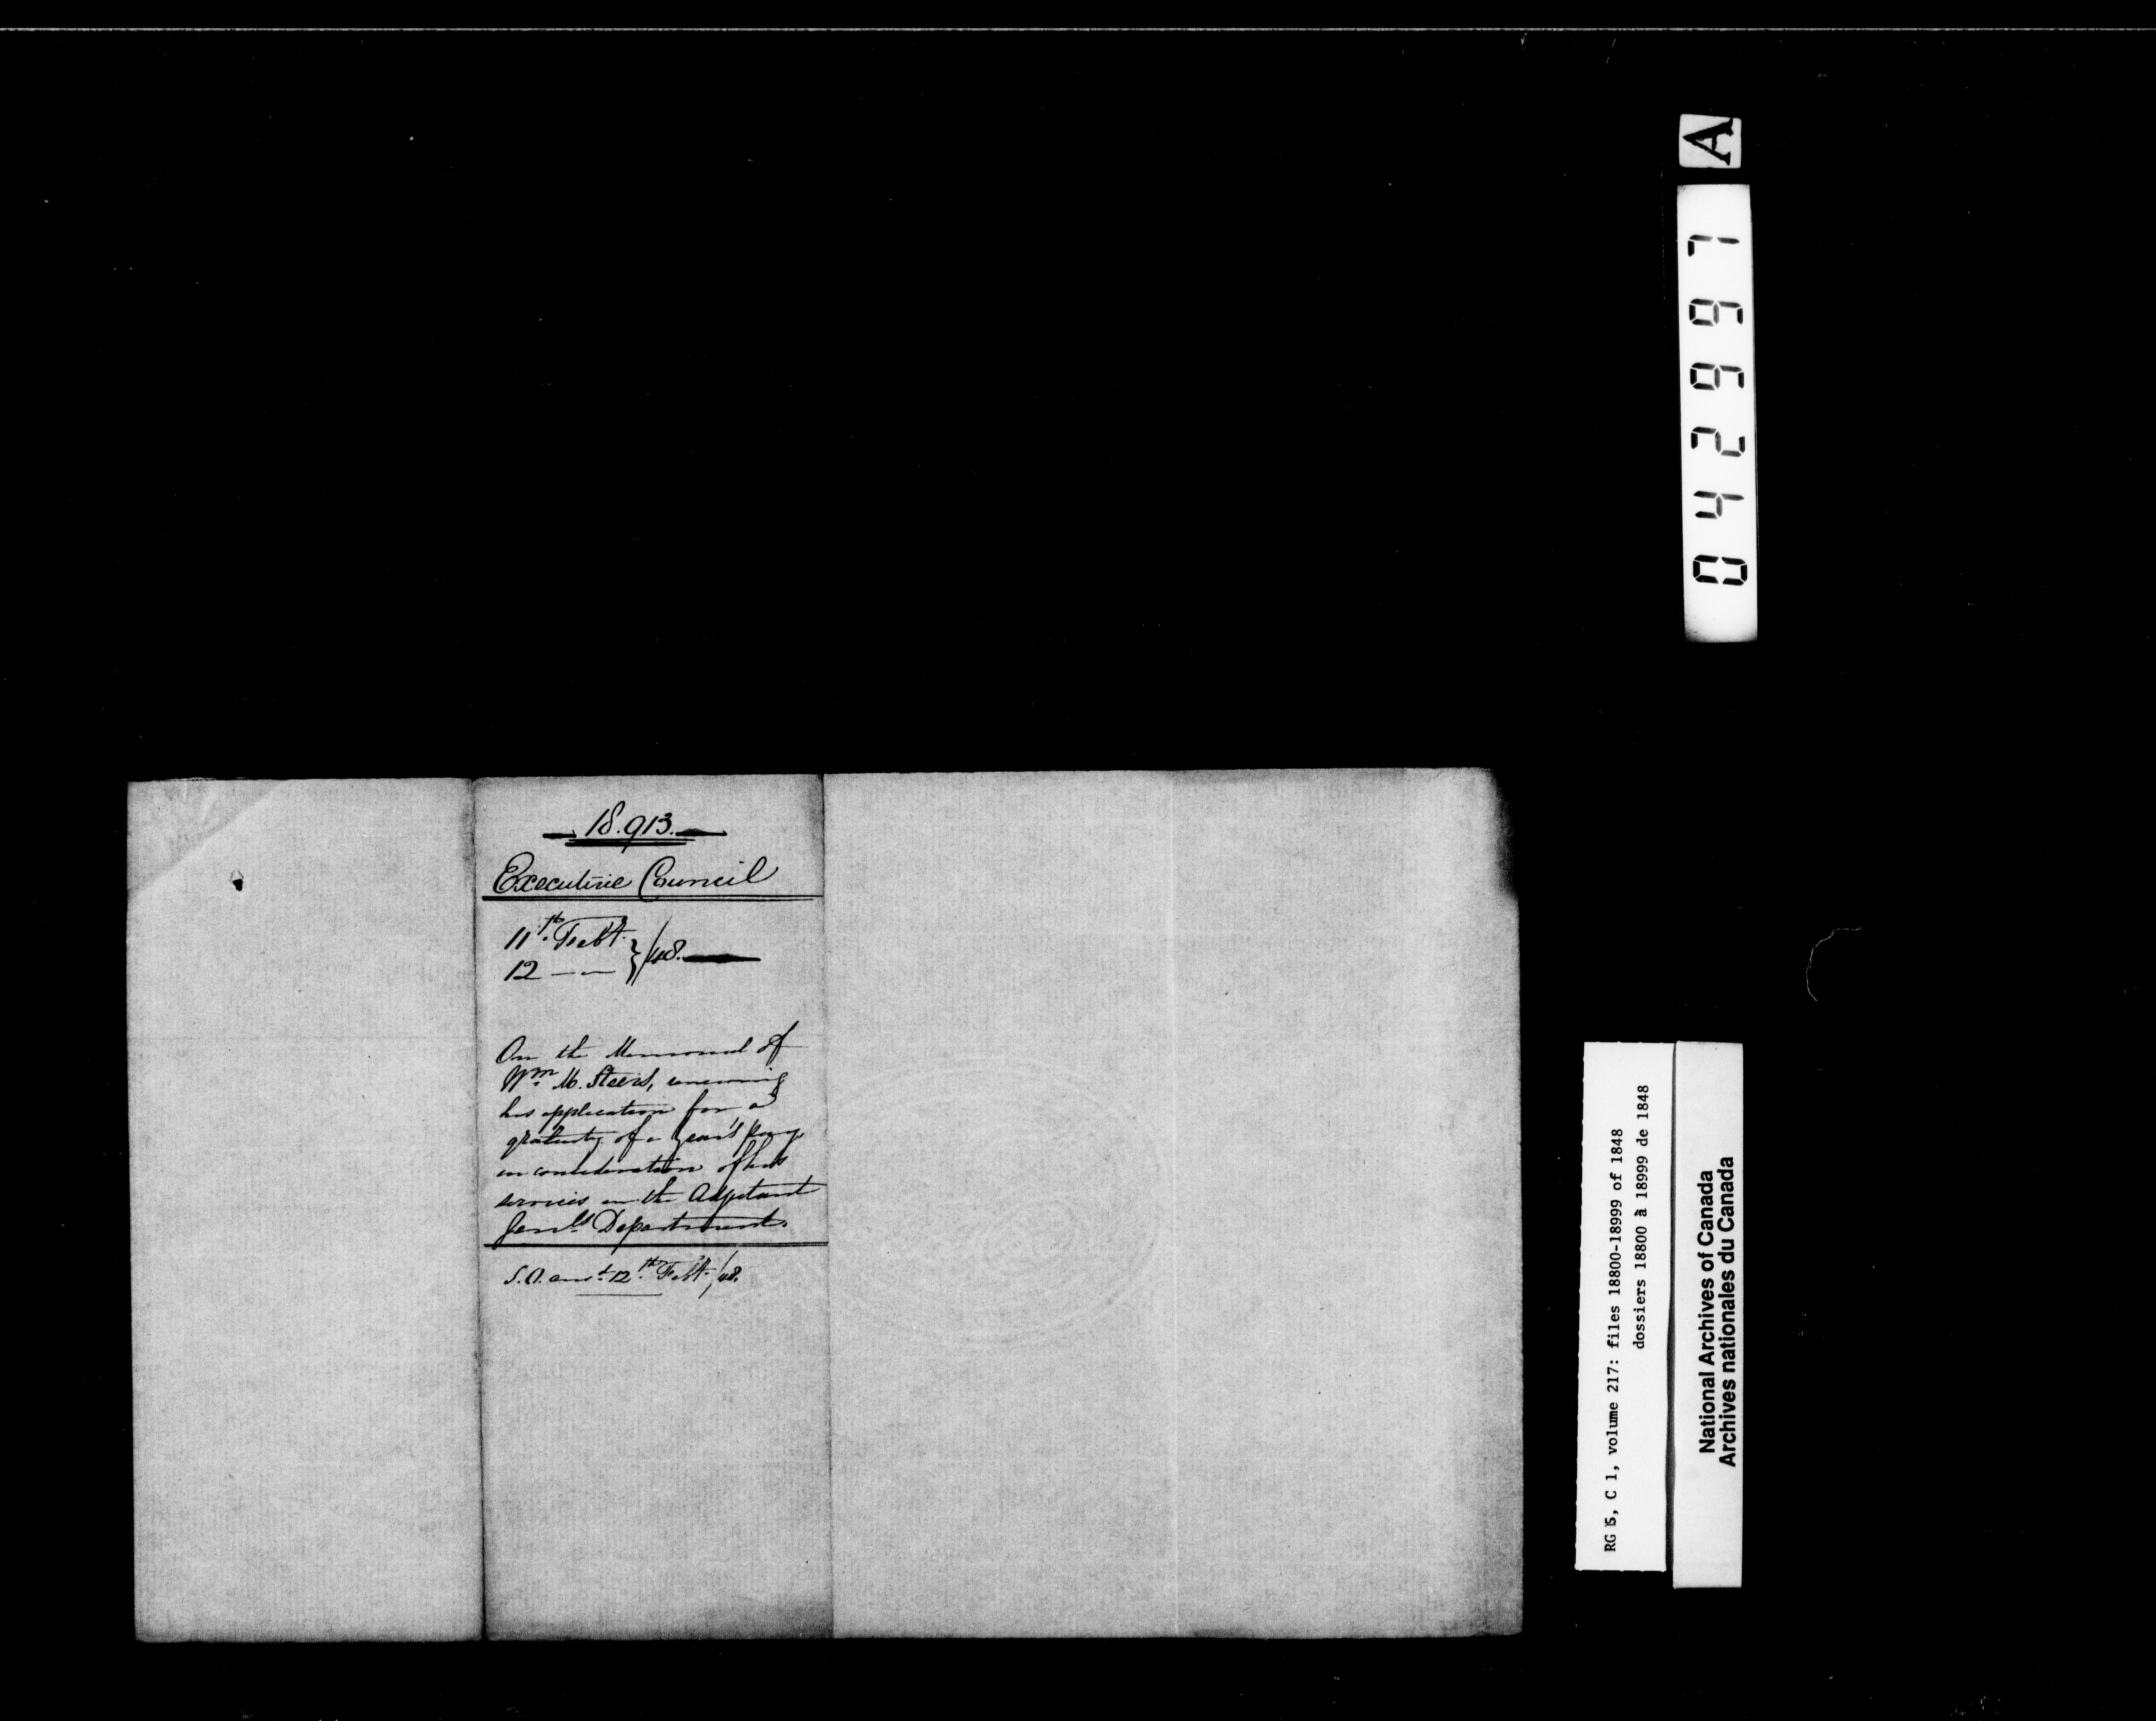 18.913.
Executive Council
11th. Feby.
12 — „ — } /48.
On the Memorial of
Wm. M. Steers, renewing
his application for a
gratuity of a year's pay
in consideration of his
services in the Adjutant
Genls Department.
S.O. ansd. 12th. Feby. /48.
A
042667
RG 5, C 1, volume 217: files 18800-18999 of 1848
dossiers 18800 à 18999 de 1848
National Archives of Canada
Archives nationales du Canada